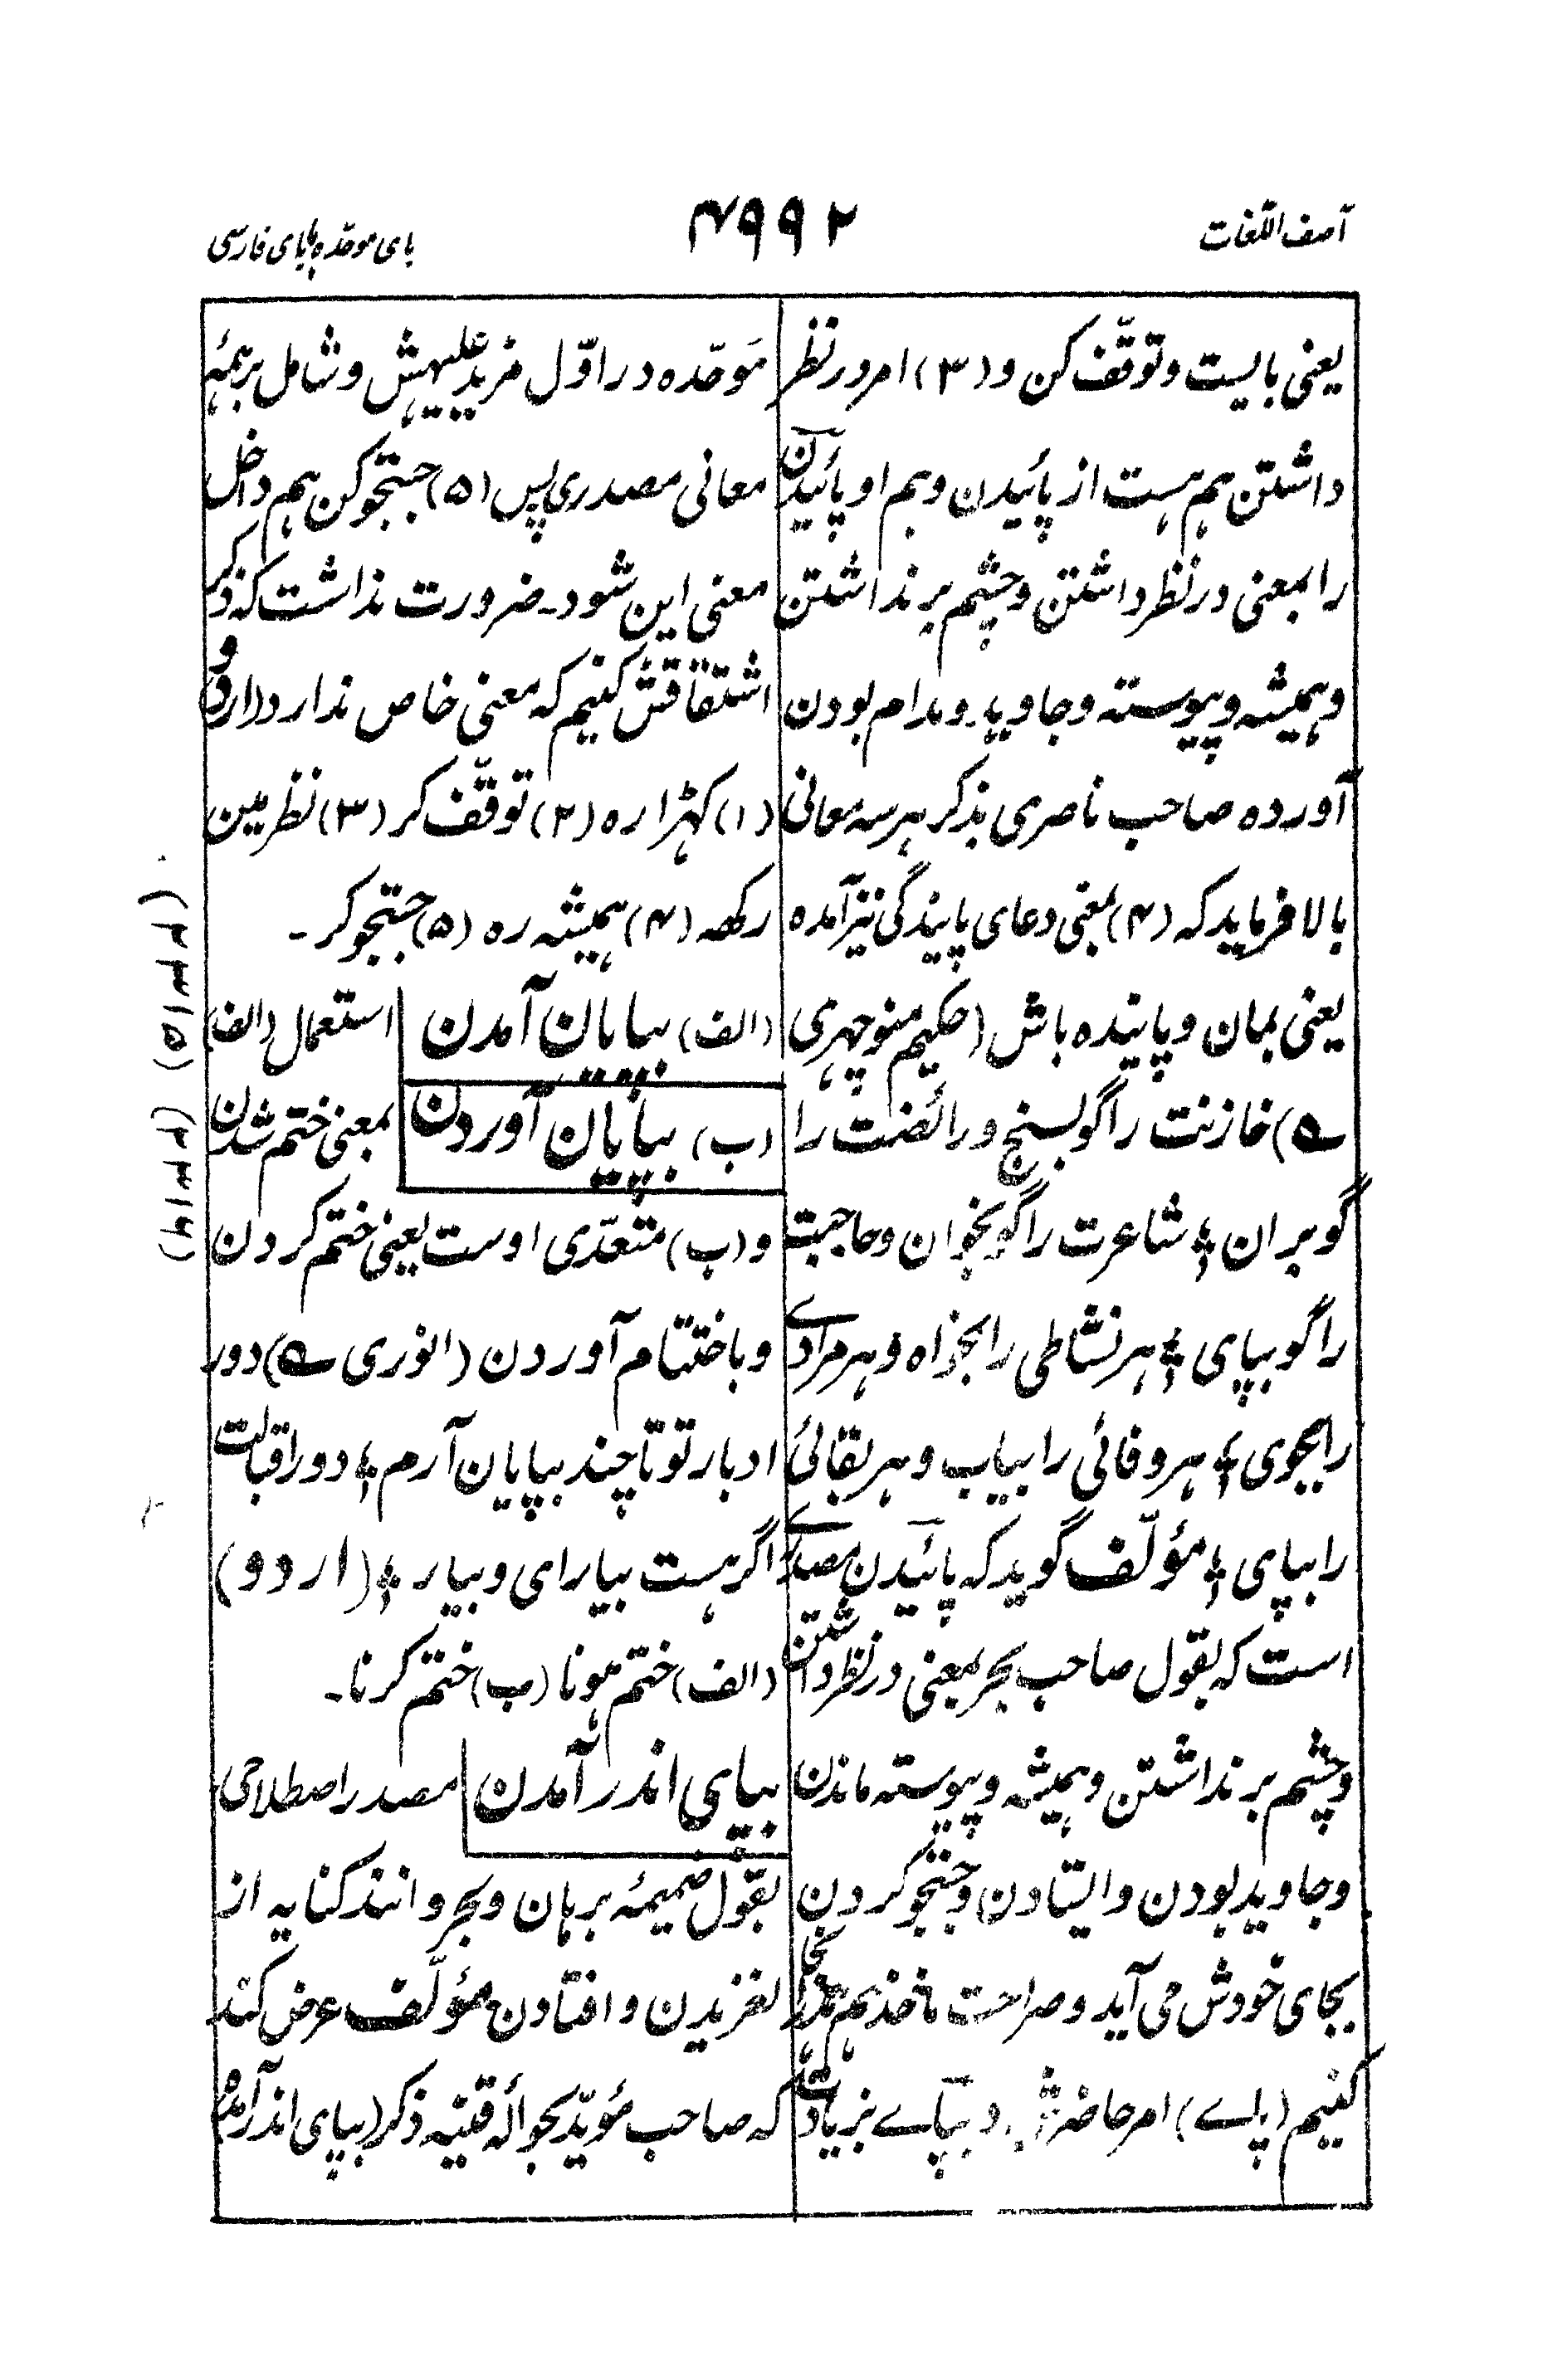 آصف اللغات
۴۹۹۲
بای موحده بابای فارسی
یعنی بایست و توقّف کن و (۳) امر در نظر
داشتن هم هست از پائیدن و هم او پائیدن
را بمعنی در نظر داشتن و چشم بر نداشتن
و همیشه و پیوسته و جاوید و مدام بودن
آورده صاحب ناصری بذکر هر سه معانی
بالا فرماید که (۴) بمعنی دعای پایندگی نیز آمده
یعنی بمان و پاینده باش (حکیم منوچهری
ے) خازنت را گو بسنج و رائضت را
گو بران ؛ شاعرت را گو بخوان و حاجبت
را گو بپای ؛ هر نشاطی را بخواه و هر مرادے
را بجوی ؛ هر وفائی را بیاب و هر بقائی
را بپای ؛ مؤلّف گوید که پائیدن مصدرے
است که بقول صاحب بحر بمعنی در نظر داشتن
و چشم بر نداشتن و همیشه و پیوسته ماندن
و جاوید بودن و ایستادن و جستجو کردن
بجای خودش می آید و صراحت ماخذ هم همدرانجا
کنیم (پاے) امر حاضرش و بپاے بزیادت
موَحّده در اوّل مزید علیهش و شامل بر همهٔ
معانی مصدری پس (۵) جستجو کن هم داخل
معنی این شود۔ ضرورت نداشت که ذکر
اشتقاقش کنیم که معنی خاص ندارد (اردو)
(۱) کهڑا ره (۲) توقّف کر (۳) نظر مین
رکهه (۴) همیشه ره (۵) جستجو کر ۔
(الف) بپایان آمدن استعمال (الف)
(ب) بپایان آوردن بمعنی ختم شدن
و (ب) متعدّی اوست یعنی ختم کردن
و باختتام آوردن (انوری ے) دور
ادبار تو تا چند بپایان آرم ؛ دور اقبالت
اگر هست بیارای و بیار ؛ (اردو)
(الف) ختم هونا (ب) ختم کرنا ۔
بپای اندر آمدن مصدر اصطلاحی
بقول ضمیمهٔ برهان و بحر و انند کنایه از
لغزیدن و افتادن مؤلّف عرض کند
که صاحب مؤیّد بحوالهٔ قنیه ذکر (بپای اندر آمده)
(۲۳۱۵)
(۲۳۱۶)